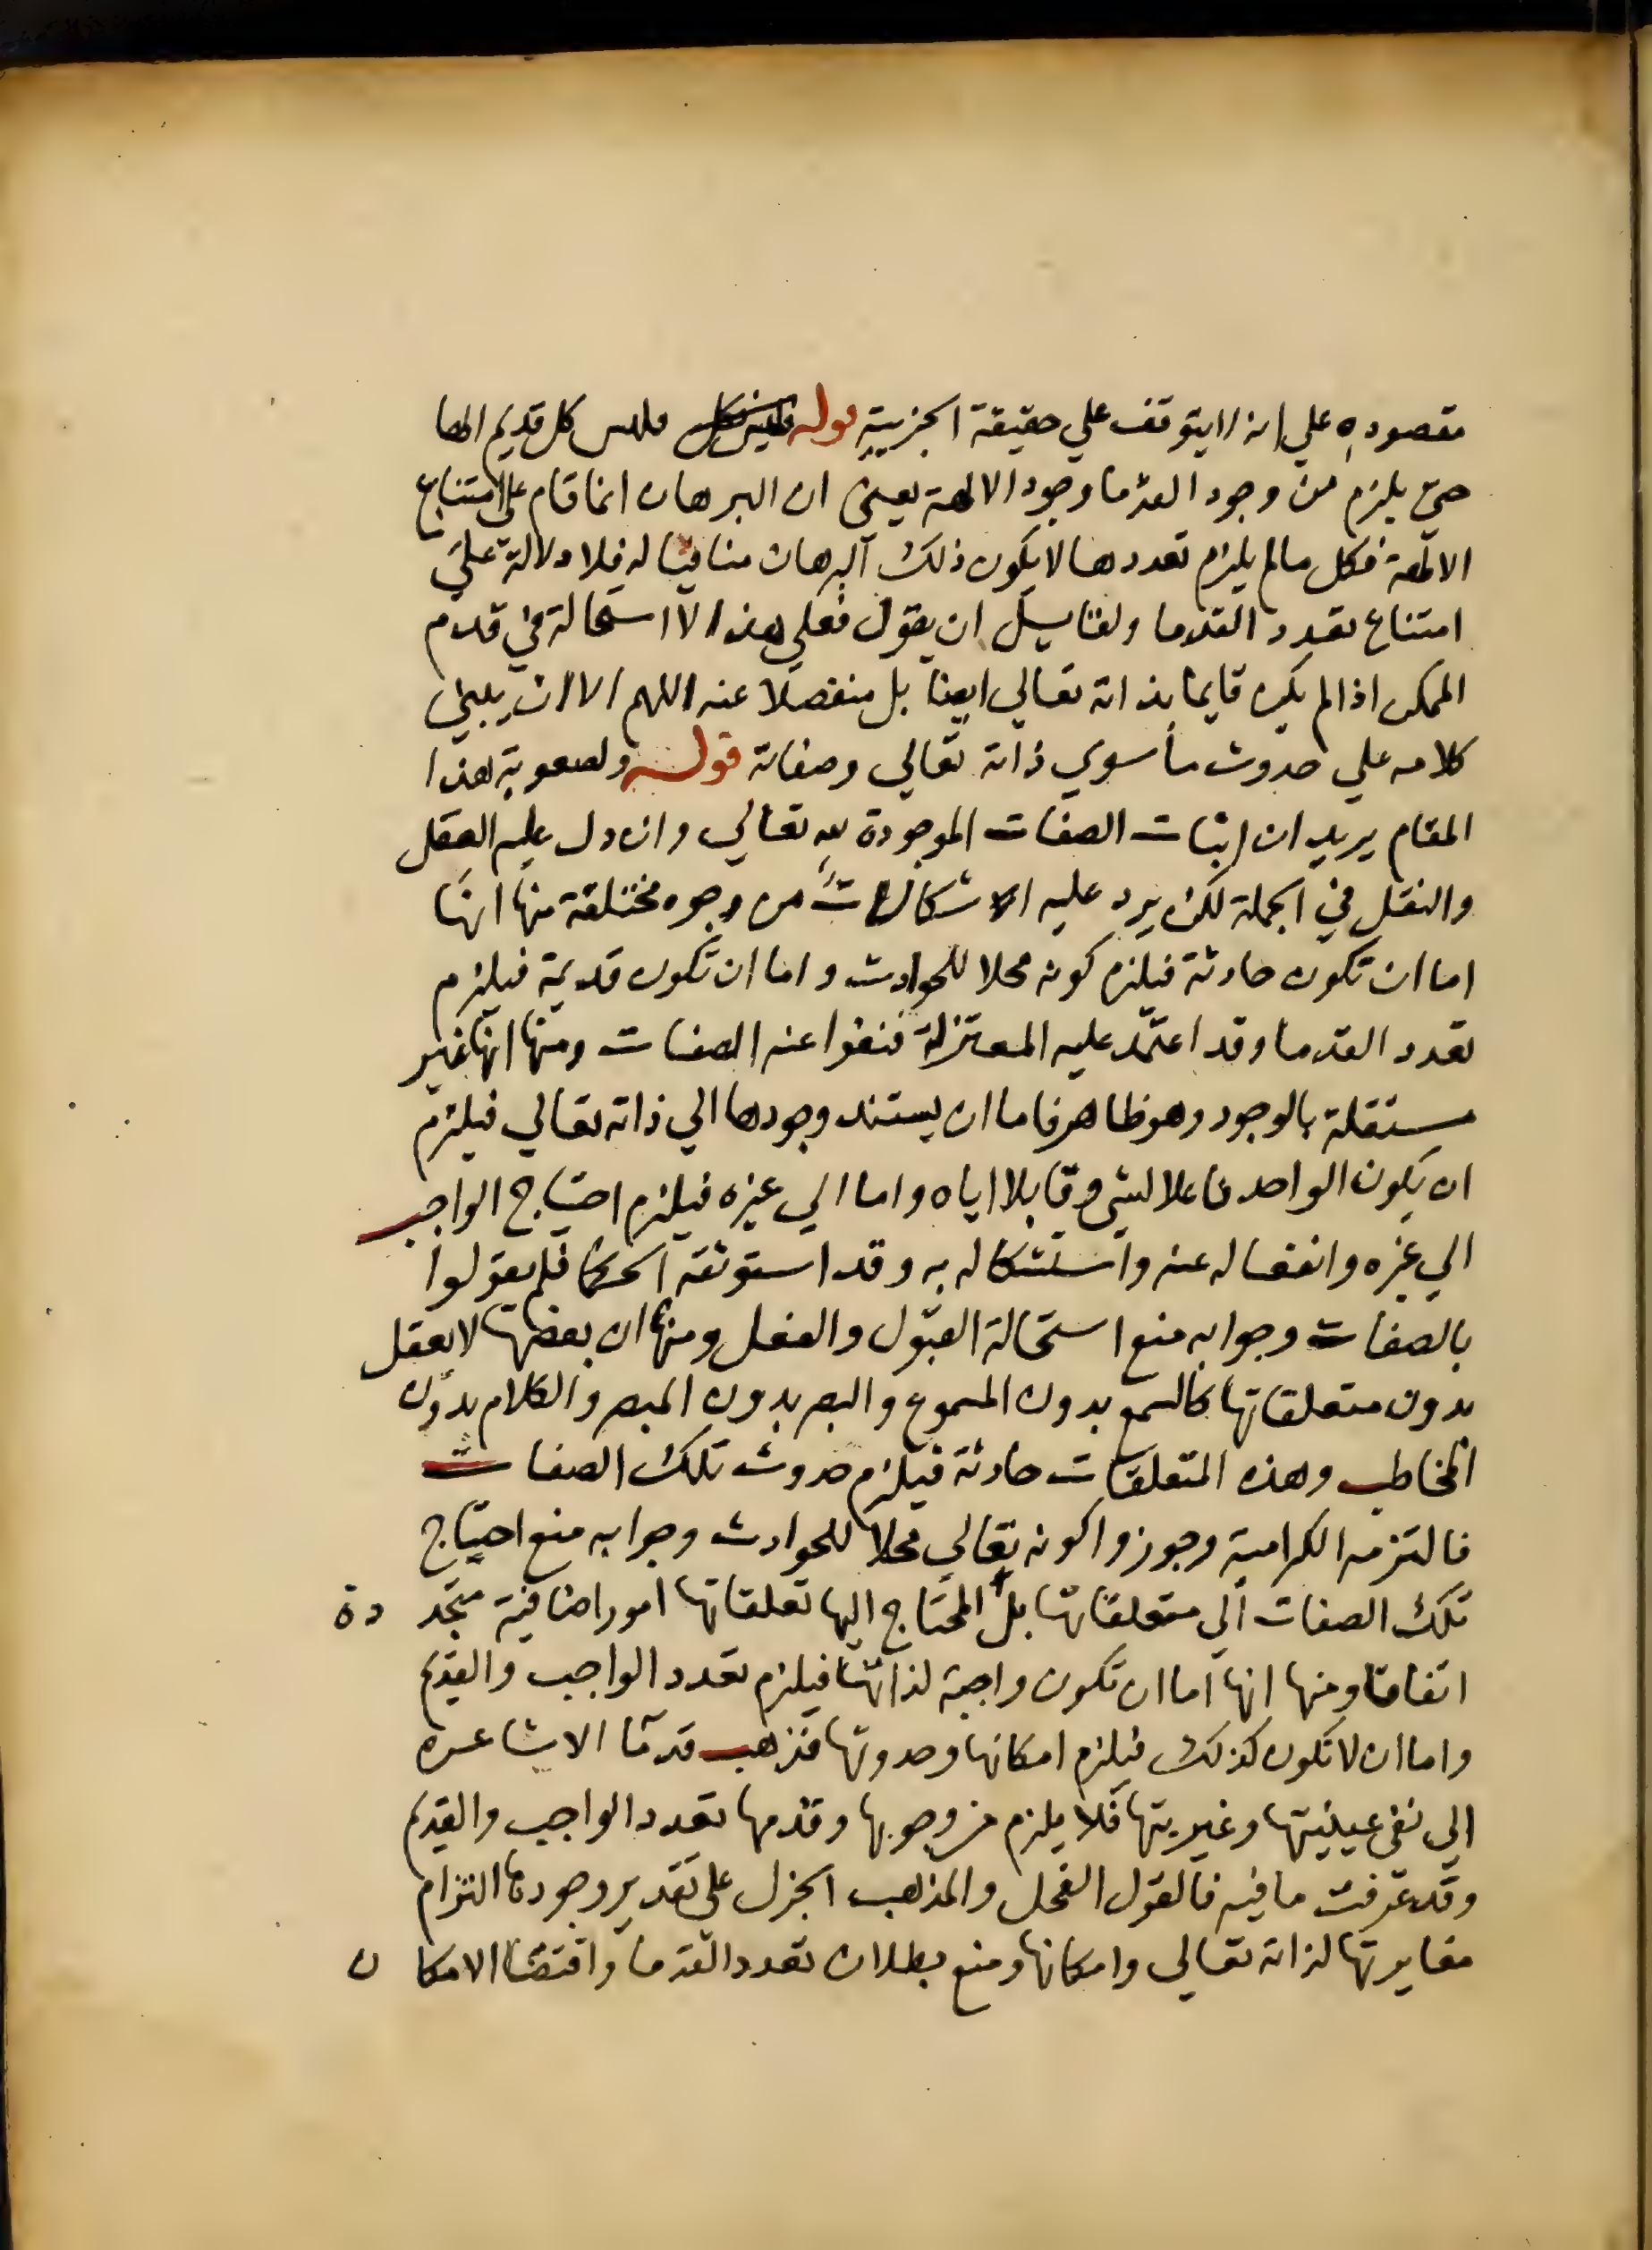 مقصوده علي انه لا يتوقف علي حقيقة الجزيية قوله فليس كل قديم الها
حتي يلزم من وجود القدما وجود الالهة يعني ان البرهان انما قام علي امتناع
الالهة فكل مالم يلزم تعددها لا يكون ذلك البرهان منافيا له فلا دلالة علي
امتناع تعدد القدما ولقايل ان يقول فعلي هذا لا استحالة في قدم
الممكن اذا لم يكن قايما بذاته تعالي ايضا بل منفصلا عنه اللهم الا ان يبني
كلامه علي حدوث ما سوي ذاته تعالي وصفاته قوله ولصعوبة هذا
المقام يريد ان اثبات الصفات الموجودة لله تعالي وان دل عليه العقل
والنقل في الجملة لكن يرد عليه الاشكالات من وجوه مختلفة منها انها
اما ان تكون حادثة فيلزم كونه محلا للحوادث واما ان تكون قديمة فيلزم
تعدد القدما وقد اعتمد عليه المعتزلة فنفوا عنه الصفات ومنها انها غير
مستقلة بالوجود وهو ظاهر فاما ان يستند وجودها الي ذاته تعالي فيلزم
ان يكون الواحد فاعلا لشي وقابلا اياه واما الي غيره فيلزم احتياج الواجب
الي غيره وانفعاله عنه واستشكاله به وقد استوثقه الحكما فلم يقولوا
بالصفات وجوابه منع استحالة القبول والفعل ومنها ان بعضها لا يعقل
بدون متعلقاتها كالسمع بدون المسموع والبصر بدون المبصر والكلام بدون
المخاطب وهذه المتعلقات حادثة فيلزم حدوث تلك الصفات
فالتزمه الكرامية وجوزوا كونه تعالي محلا للحوادث وجوابه منع احتياج
تلك الصفات الي متعلقاتها بل المحتاج اليها تعلقاتها امور اضافية متجد دة
اتفاقا ومنها انها اما ان تكون واجبة لذاتها فيلزم تعدد الواجب والقديم
واما ان لا تكون كذلك فيلزم امكانها وحدوثها فذهب قدما الاشاعره
الي نفي عينيتها وغيريتها فلا يلزم من وجوبها وقدمها تعدد الواجب والقديم
وقد عرفت ما فيه فالقول الفحل والمذهب الجزل علي تقدير وجودها التزام
مغايرتها لذاته تعالي وامكانها ومنع بطلان تعدد القدما واقتضا الامكا ن